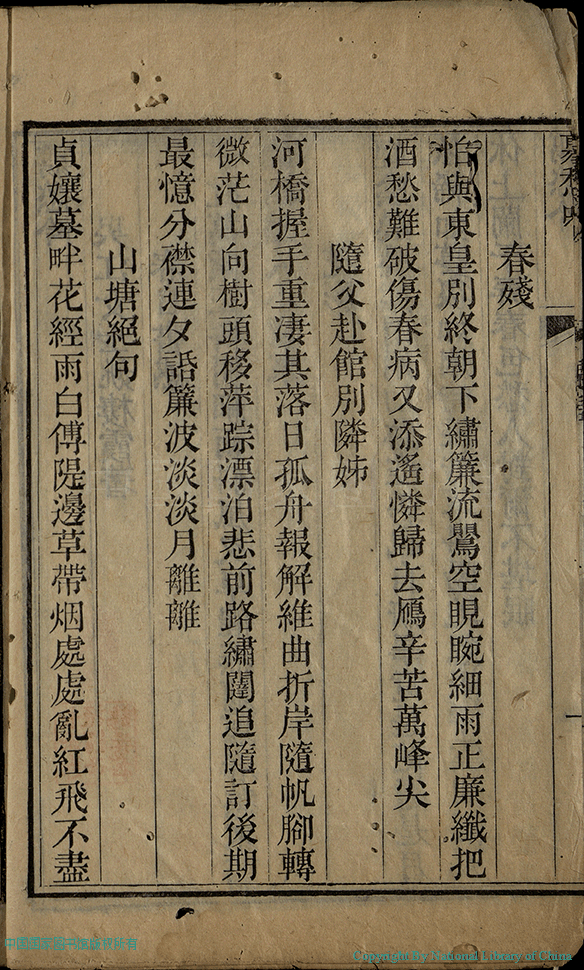 春殘
怕與東皇別終朝下繡簾流鶯空睍睆細雨正廉纖把
酒愁難破傷春病又添遙憐歸去鴈辛苦萬峰尖
隨父赴館別隣姊
河橋握手重凄其落日孤舟報解維曲折岸隨帆腳轉
微茫山向樹頭移萍踪漂泊悲前路繡闥追隨訂後期
最憶分襟連夕話簾波淡淡月離離
山塘絕句
貞孃墓畔花經雨白傅隄邊草帶烟處處亂紅飛不盡
Copyright By National Library of China